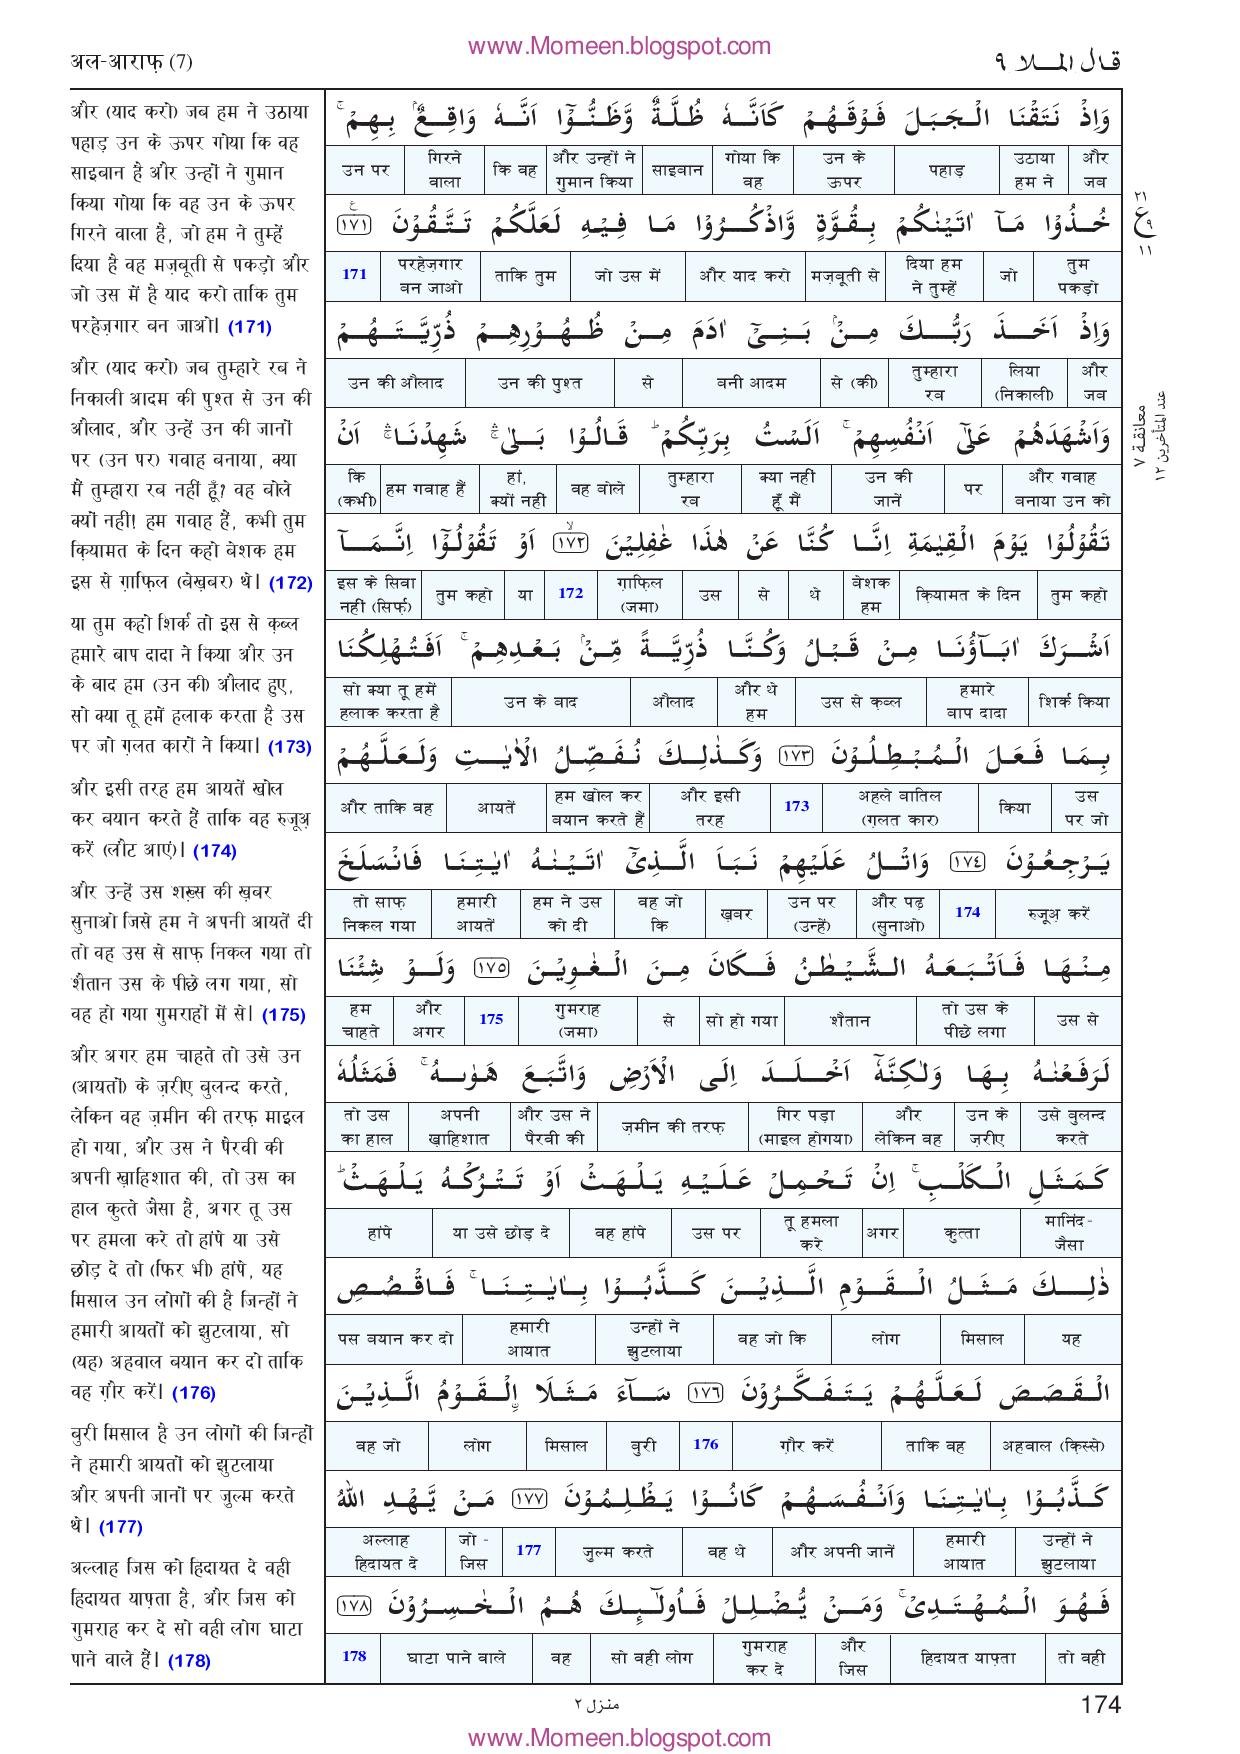 www.Momeen.blogspot.com
अल-आराफ़ (7)
قال الملا ٩
और (याद करो) जब हम ने उठाया
पहाड़ उन के ऊपर गोया कि वह
साइबान है और उन्हों ने गुमान
किया गोया कि वह उन के ऊपर
गिरने वाला है, जो हम ने तुम्हें
दिया है वह मज़बूती से पकड़ो और
जो उस में है याद करो ताकि तुम
परहेज़गार बन जाओ। (171)
और (याद करो) जब तुम्हारे रब ने
निकाली आदम की पुश्त से उन की
औलाद, और उन्हें उन की जानों
पर (उन पर) गवाह बनाया, क्या
मैं तुम्हारा रब नहीं हूँ? वह बोले
क्यों नहीं! हम गवाह हैं, कभी तुम
क़ियामत के दिन कहो बेशक हम
इस से ग़ाफ़िल (बेख़बर) थे। (172)
या तुम कहो शिर्क तो इस से क़ब्ल
हमारे बाप दादा ने किया और उन
के बाद हम (उन की) औलाद हुए,
सो क्या तू हमें हलाक करता है उस
पर जो ग़लत कारों ने किया। (173)
और इसी तरह हम आयतें खोल
कर बयान करते हैं ताकि वह रुजूअ़
करें (लौट आएं)। (174)
और उन्हें उस शख़्स की ख़बर
सुनाओ जिसे हम ने अपनी आयतें दी
तो वह उस से साफ़ निकल गया तो
शैतान उस के पीछे लग गया, सो
वह हो गया गुमराहों में से। (175)
और अगर हम चाहते तो उसे उन
(आयतों) के ज़रीए बुलन्द करते,
लेकिन वह ज़मीन की तरफ़ माइल
हो गया, और उस ने पैरवी की
अपनी ख़ाहिशात की, तो उस का
हाल कुत्ते जैसा है, अगर तू उस
पर हमला करे तो हांपे या उसे
छोड़ दे तो (फिर भी) हांपे, यह
मिसाल उन लोगों की है जिन्हों ने
हमारी आयतों को झुटलाया, सो
(यह) अहवाल बयान कर दो ताकि
वह ग़ौर करें। (176)
बुरी मिसाल है उन लोगों की जिन्हों
ने हमारी आयतों को झुटलाया
और अपनी जानों पर जुल्म करते
थे। (177)
अल्लाह जिस को हिदायत दे वही
हिदायत याफ़्ता है, और जिस को
गुमराह कर दे सो वही लोग घाटा
पाने वाले हैं। (178)
وَاِذْ نَتَقْنَا الْجَبَلَ فَوْقَهُمْ كَاَنَّهٗ ظُلَّةٌ وَّظَنُّوْٓا اَنَّهٗ وَاقِعٌۢ بِهِمْ ۚ
और जब | उठाया हम ने | पहाड़ | उन के ऊपर | गोया कि वह | साइबान | और उन्हों ने गुमान किया | कि वह | गिरने वाला | उन पर
خُذُوْا مَآ اٰتَيْنٰكُمْ بِقُوَّةٍ وَّاذْكُرُوْا مَا فِيْهِ لَعَلَّكُمْ تَتَّقُوْنَ ١٧١
तुम पकड़ो | जो | दिया हम ने तुम्हें | मज़बूती से | और याद करो | जो उस में | ताकि तुम | परहेज़गार बन जाओ | 171
وَاِذْ اَخَذَ رَبُّكَ مِنْۢ بَنِيْٓ اٰدَمَ مِنْ ظُهُوْرِهِمْ ذُرِّيَّتَهُمْ
और जब | लिया (निकाली) | तुम्हारा रब | से (की) | बनी आदम | से | उन की पुश्त | उन की औलाद
وَاَشْهَدَهُمْ عَلٰٓى اَنْفُسِهِمْ ۚ اَلَسْتُ بِرَبِّكُمْ ۭ قَالُوْا بَلٰى ۛ شَهِدْنَا ۛ اَنْ
और गवाह बनाया उन को | पर | उन की जानें | क्या नहीं हूँ मैं | तुम्हारा रब | वह बोले | हां, क्यों नहीं | हम गवाह हैं | कि (कभी)
تَقُوْلُوْا يَوْمَ الْقِيٰمَةِ اِنَّا كُنَّا عَنْ هٰذَا غٰفِلِيْنَ ١٧٢ اَوْ تَقُوْلُوْٓا اِنَّمَآ
तुम कहो | क़ियामत के दिन | बेशक हम | थे | से | उस | ग़ाफ़िल (जमा) | 172 | या | तुम कहो | इस के सिवा नहीं (सिर्फ़)
اَشْرَكَ اٰبَآؤُنَا مِنْ قَبْلُ وَكُنَّا ذُرِّيَّةً مِّنْۢ بَعْدِهِمْ ۚ اَفَتُهْلِكُنَا
शिर्क किया | हमारे बाप दादा | उस से क़ब्ल | और थे हम | औलाद | उन के बाद | सो क्या तू हमें हलाक करता है
بِمَا فَعَلَ الْمُبْطِلُوْنَ ١٧٣ وَكَذٰلِكَ نُفَصِّلُ الْاٰيٰتِ وَلَعَلَّهُمْ
उस पर जो | किया | अहले बातिल (ग़लत कार) | 173 | और इसी तरह | हम खोल कर बयान करते हैं | आयतें | और ताकि वह
يَرْجِعُوْنَ ١٧٤ وَاتْلُ عَلَيْهِمْ نَبَاَ الَّذِيْٓ اٰتَيْنٰهُ اٰيٰتِنَا فَانْسَلَخَ
रुजूअ़ करें | 174 | और पढ़ (सुनाओ) | उन पर (उन्हें) | ख़बर | वह जो कि | हम ने उस को दी | हमारी आयतें | तो साफ़ निकल गया
مِنْهَا فَاَتْبَعَهُ الشَّيْطٰنُ فَكَانَ مِنَ الْغٰوِيْنَ ١٧٥ وَلَوْ شِئْنَا
उस से | तो उस के पीछे लगा | शैतान | सो हो गया | से | गुमराह (जमा) | 175 | और अगर | हम चाहते
لَرَفَعْنٰهُ بِهَا وَلٰكِنَّهٗٓ اَخْلَدَ اِلَى الْاَرْضِ وَاتَّبَعَ هَوٰىهُ ۚ فَمَثَلُهٗ
उसे बुलन्द करते | उन के ज़रीए | और लेकिन वह | गिर पड़ा (माइल होगया) | ज़मीन की तरफ़ | और उस ने पैरवी की | अपनी ख़ाहिशात | तो उस का हाल
كَمَثَلِ الْكَلْبِ ۚ اِنْ تَحْمِلْ عَلَيْهِ يَلْهَثْ اَوْ تَتْرُكْهُ يَلْهَثْ ۭ
मानिंद- जैसा | कुत्ता | अगर | तू हमला करे | उस पर | वह हांपे | या उसे छोड़ दे | हांपे
ذٰلِكَ مَثَلُ الْقَوْمِ الَّذِيْنَ كَذَّبُوْا بِاٰيٰتِنَا ۚ فَاقْصُصِ
यह | मिसाल | लोग | वह जो कि | उन्हों ने झुटलाया | हमारी आयात | पस बयान कर दो
الْقَصَصَ لَعَلَّهُمْ يَتَفَكَّرُوْنَ ١٧٦ سَآءَ مَثَلَا اۨلْقَوْمُ الَّذِيْنَ
अहवाल (क़िस्से) | ताकि वह | ग़ौर करें | 176 | बुरी | मिसाल | लोग | वह जो
كَذَّبُوْا بِاٰيٰتِنَا وَاَنْفُسَهُمْ كَانُوْا يَظْلِمُوْنَ ١٧٧ مَنْ يَّهْدِ اللّٰهُ
उन्हों ने झुटलाया | हमारी आयात | और अपनी जानें | वह थे | जुल्म करते | 177 | जो - जिस | अल्लाह हिदायत दे
فَهُوَ الْمُهْتَدِيْ ۚ وَمَنْ يُّضْلِلْ فَاُولٰٓئِكَ هُمُ الْخٰسِرُوْنَ ١٧٨
तो वही | हिदायत याफ़्ता | और जिस | गुमराह कर दे | सो वही लोग | वह | घाटा पाने वाले | 178
٢١
ع ٩
١١
معانقة ٧
عند المتأخرين ١٢
منزل ٢
174
www.Momeen.blogspot.com